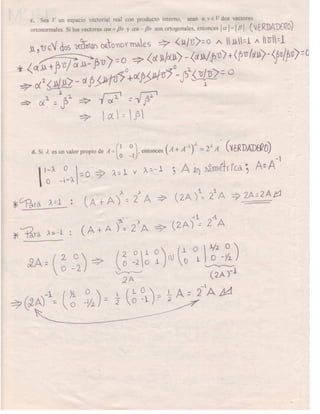 c. Sea V un espacio vectorial real con producto interno, sean u, v ∈ V dos vectores
ortonormales. Si los vectores αu+βv y αu−βv son ortogonales, entonces |α|=|β|. (VERDADERO)
u, v ∈ V dos vectores ortonormales ⇒ <u/v>=0 ∧ ||u||=1 ∧ ||v||=1
* <αu+βv/αu−βv>=0 ⇒ <αu/αu>−<αu/βv>+<βv/αu>−<βv/βv>=0
⇒ α²<u/u>−αβ<u/v>+αβ<u/v>−β²<v/v>=0
⇒ α²=β² ⇒ √α² = √β²
⇒ |α|=|β|
d. Si λ es un valor propio de A=(1 0 0 −1), entonces (A+A⁻¹)^λ=2^λ A (VERDADERO)
|1−λ 0 0 −1−λ|=0 ⇒ λ=1 ∨ λ=−1 ; A es simétrica ; A=A⁻¹
* Para λ=1 : (A+A)^λ=2^λ A ⇒ (2A)¹=2¹A ⇒ 2A=2A
* Para λ=−1 : (A+A)^λ=2^λ A ⇒ (2A)⁻¹=2⁻¹A
2A=(2 0 0 −2) ⇒ (2 0 | 1 0 0 −2 | 0 1) ≈ (1 0 | 1/2 0 0 1 | 0 −1/2)
2A (2A)⁻¹
⇒ (2A)⁻¹=(1/2 0 0 −1/2)=1/2 (1 0 0 −1)=1/2 A=2⁻¹A